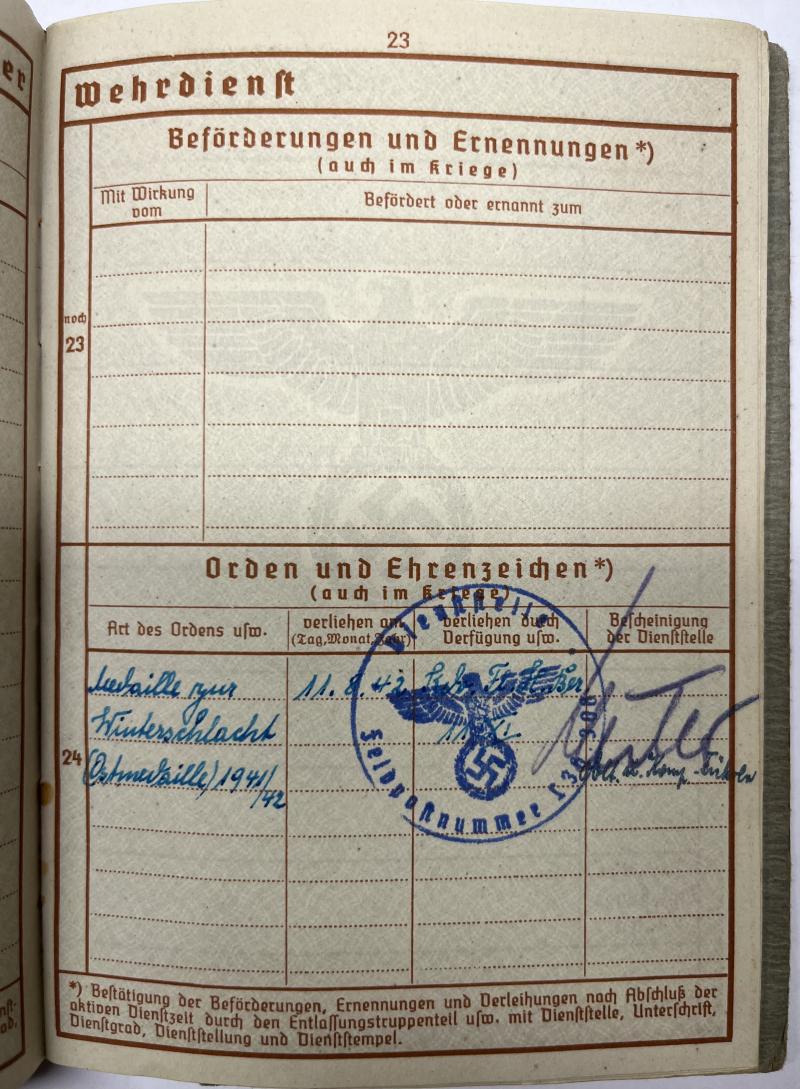 23
er
Wehrdienst
Beförderungen und Ernennungen*)
(auch im Kriege)
Mit Wirkung
vom
Befördert oder ernannt zum
noch
23
Orden und Ehrenzeichen*)
(auch im Kriege)
Art des Ordens usw.
verliehen am
(Tag, Monat, Jahr)
verliehen durch
Verfügung usw.
Bescheinigung
der Dienststelle
24
Medaille zur
Winterschlacht
(Ostmedaille) 1941/
/42
11. 8. 42
Dienststelle
Feldpostnummer
*) Bestätigung der Beförderungen, Ernennungen und Verleihungen nach Abschluß der
aktiven Dienstzeit durch den Entlassungstruppenteil usw. mit Dienststelle, Unterschrift,
Dienstgrad, Dienststellung und Dienststempel.